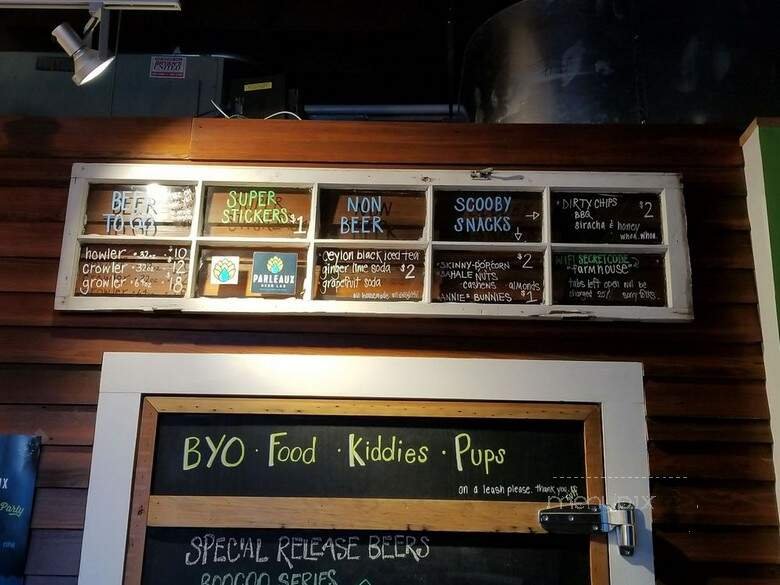 BEER
TO GO
SUPER
STICKERS $1
NON
BEER
SCOOBY
SNACKS
DIRTY CHIPS
BBQ $2
siracha & honey
whoa. whoa.
howler • 32oz • 10
crowler • 32oz • 12
growler • 64oz • 18
PARLEAUX
BEER LAB
ceylon black iced tea
ginger lime soda $2
grapefruit soda
SKINNY POPCORN $2
SAHALE NUTS
cashews almonds
ANNIE'S BUNNIES $1
WIFI SECRET CODE
"farmhouse"
tabs left open will be
charged 25%
BYO · Food · Kiddies · Pups
on a leash please. thank you.
SPECIAL RELEASE BEERS
BOOGOO SERIES
Party
menupix